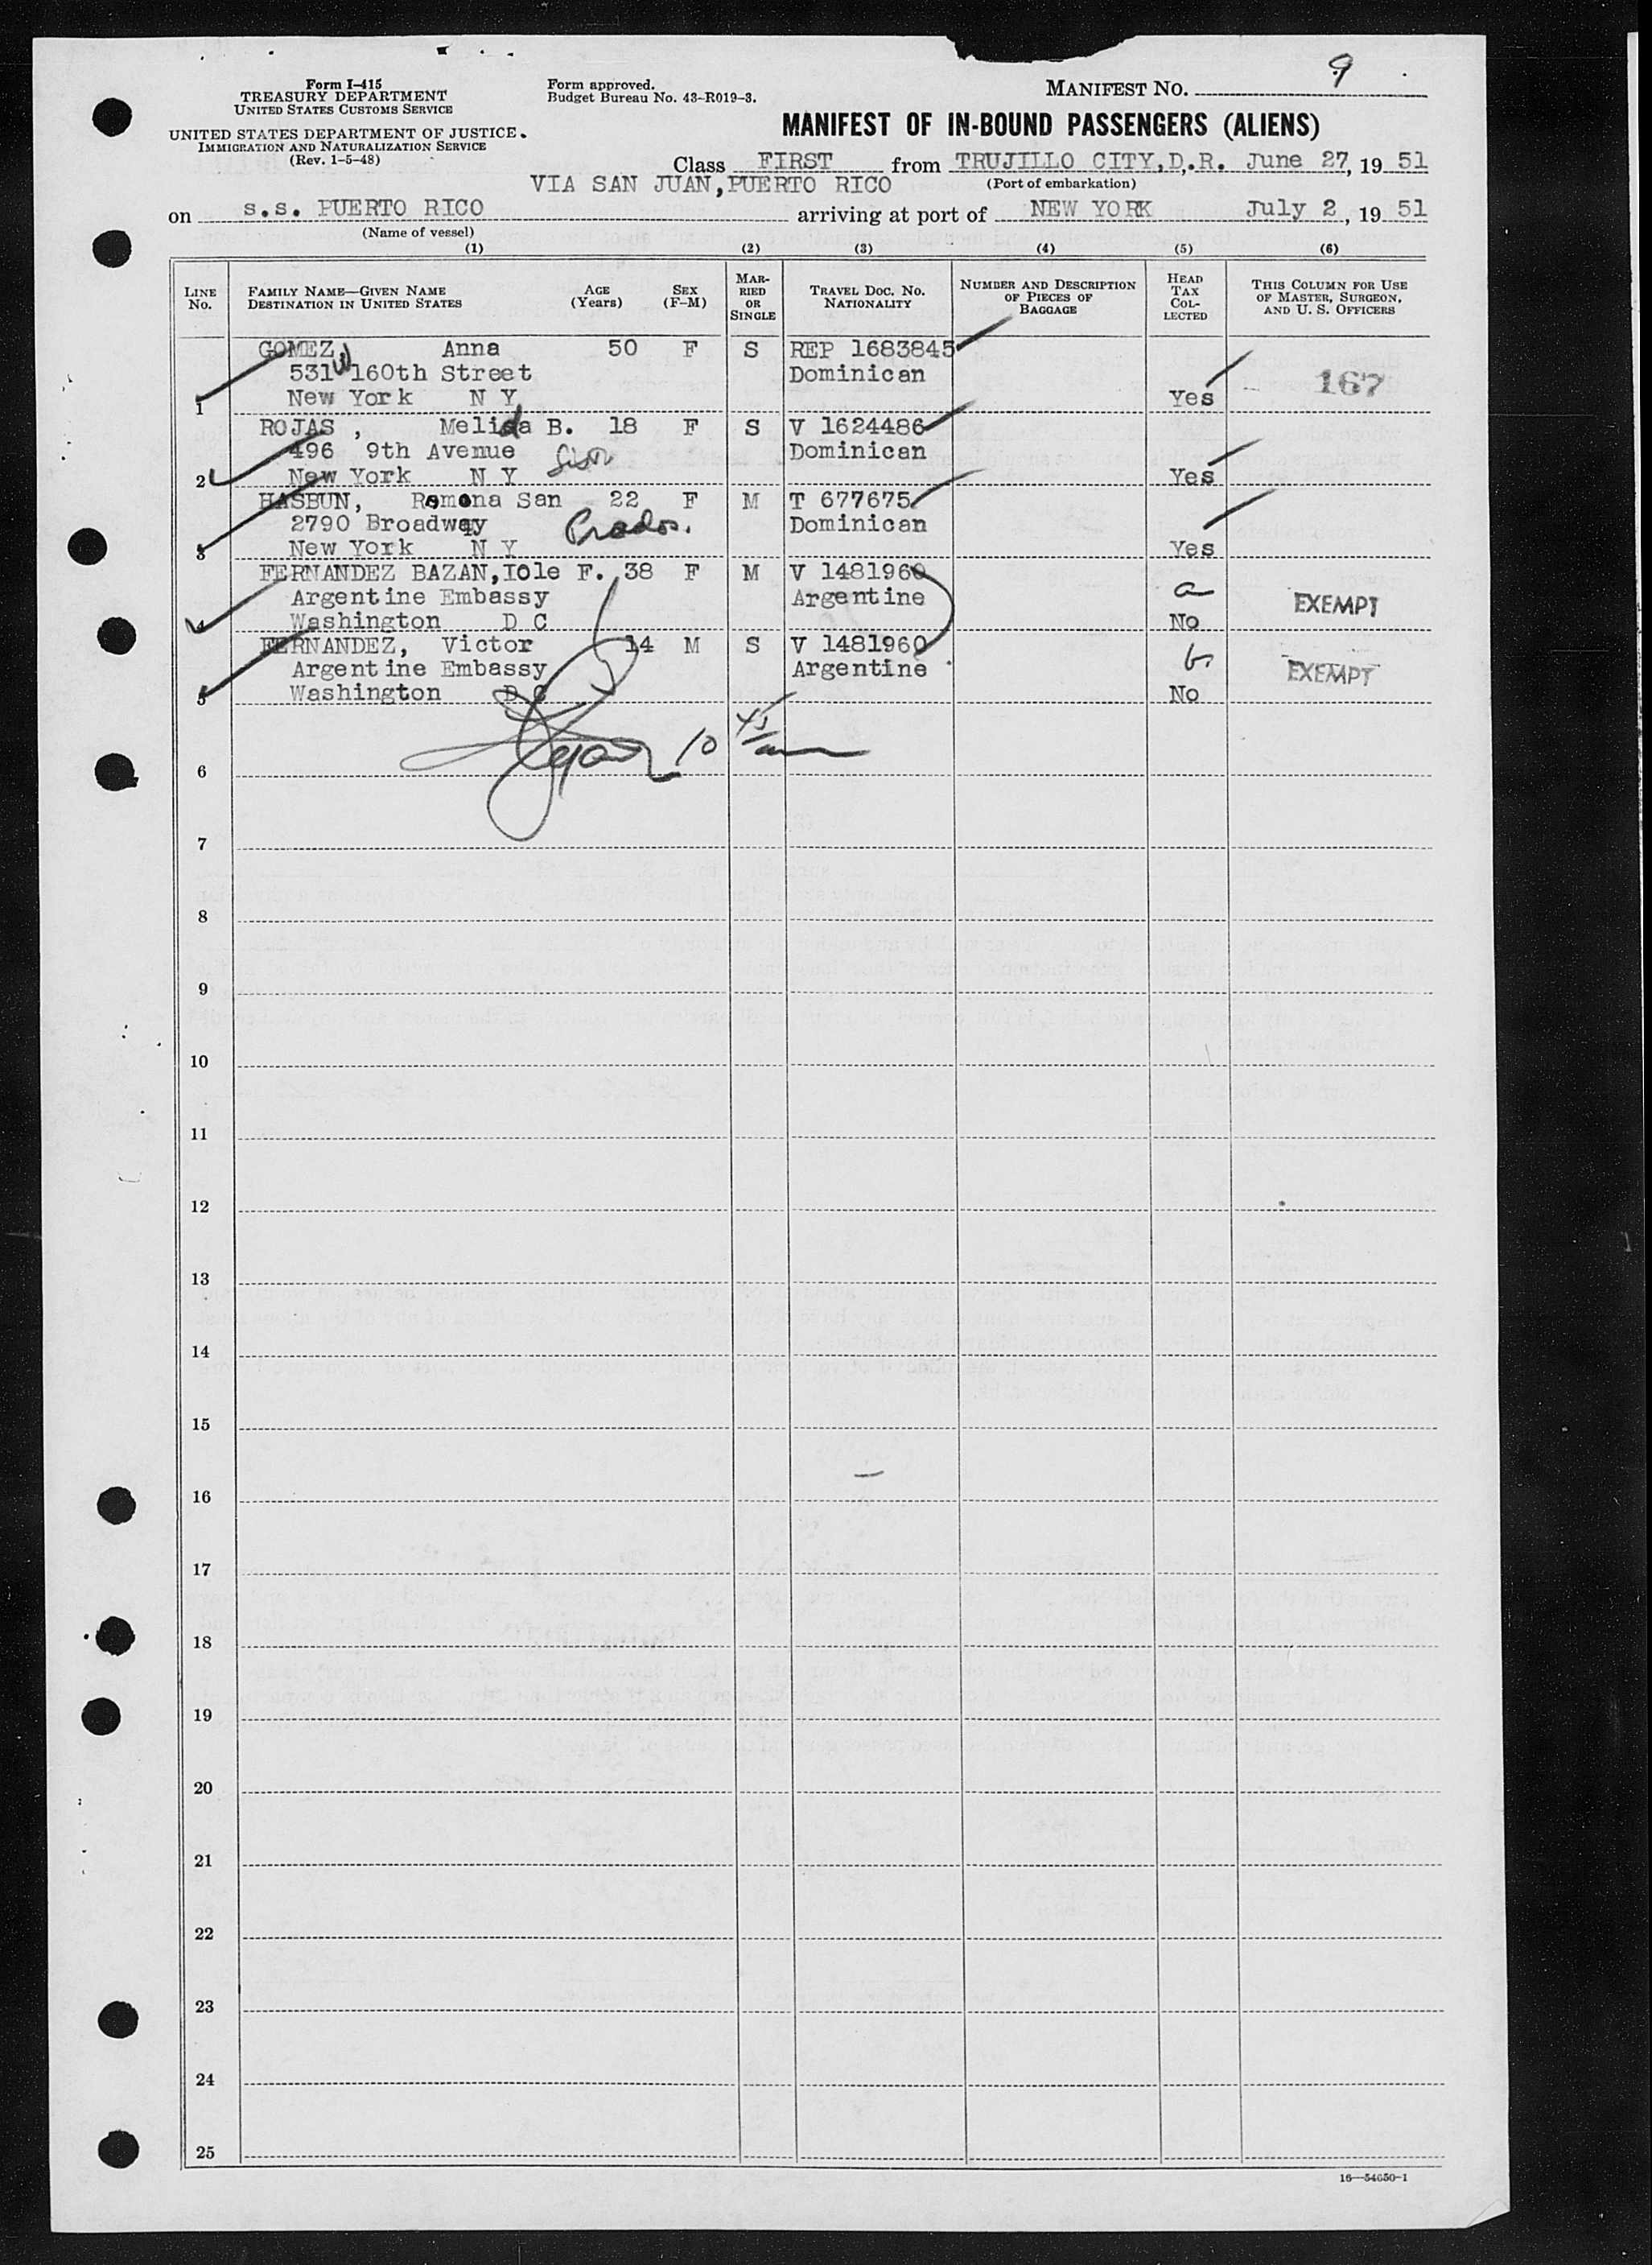 Form I-415
TREASURY DEPARTMENT
UNITED STATES CUSTOMS SERVICE
UNITED STATES DEPARTMENT OF JUSTICE
IMMIGRATION AND NATURALIZATION SERVICE
(Rev. 1-5-48)
Form approved.
Budget Bureau No. 43-R019-3.
MANIFEST NO. 9
MANIFEST OF IN-BOUND PASSENGERS (ALIENS)
Class FIRST from TRUJILLO CITY, D.R. June 27, 19 51
VIA SAN JUAN, PUERTO RICO (Port of embarkation)
on s.s. PUERTO RICO arriving at port of NEW YORK July 2, 19 51
(Name of vessel)
(1) (2) (3) (4) (5) (6)
LINE No. FAMILY NAME—GIVEN NAME DESTINATION IN UNITED STATES AGE (Years) SEX (F-M) MARRIED OR SINGLE TRAVEL DOC. NO. NATIONALITY NUMBER AND DESCRIPTION OF PIECES OF BAGGAGE HEAD TAX COLLECTED THIS COLUMN FOR USE OF MASTER, SURGEON, AND U. S. OFFICERS
GOMEZ, Anna 50 F S REP 1683845
531 W 160th Street Dominican 167
1 New York N Y Yes
ROJAS , Melida B. 18 F S V 1624486
496 9th Avenue Dominican
2 New York N Y Yes
HASBUN, Ramona San 22 F M T 677675
2790 Broadway Prados. Dominican
3 New York N Y Yes
FERNANDEZ BAZAN, IOle F. 38 F M V 1481960
Argentine Embassy Argentine a EXEMPT
4 Washington D C No
FERNANDEZ, Victor 14 M S V 1481960
Argentine Embassy Argentine b EXEMPT
5 Washington D C No
10
6
7
8
9
10
11
12
13
14
15
16
17
18
19
20
21
22
23
24
25
16—54650-1